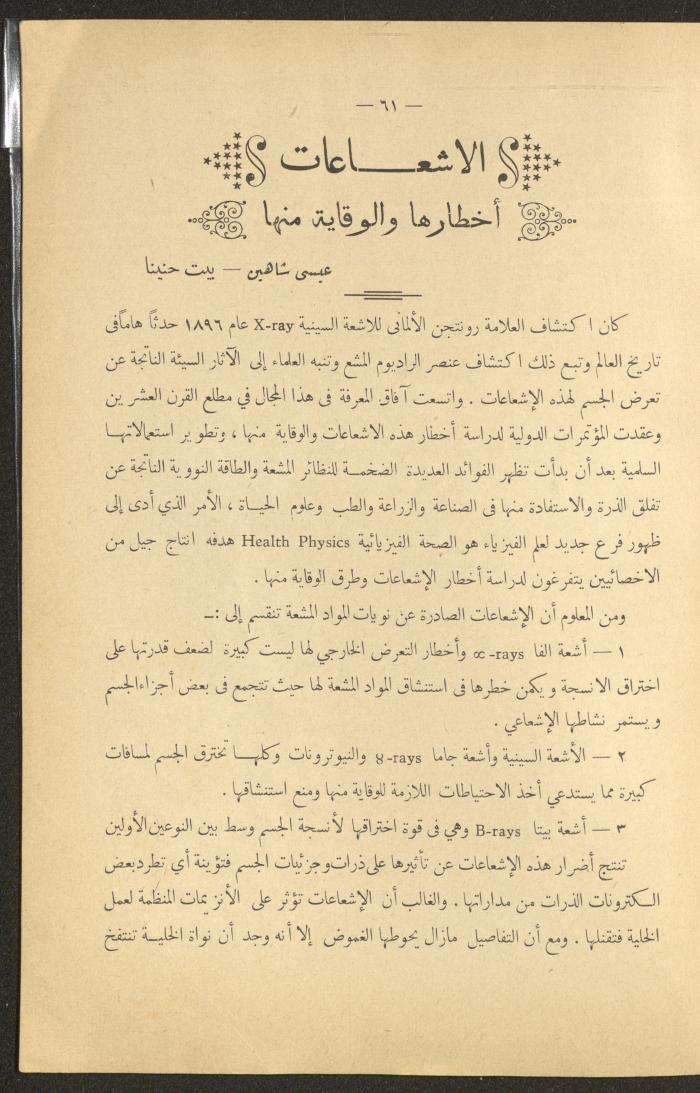 — ٦١ —
الاشعـــاعات
أخطارها والوقاية منها
عيسى شاهين — بيت حنينا
كان اكتشاف العلامة رونتجن الألمانى للاشعة السينية X-ray عام ١٨٩٦ حدثاً هاماً فى
تاريخ العالم وتبع ذلك اكتشاف عنصر الراديوم المشع وتنبه العلماء إلى الآثار السيئة الناتجة عن
تعرض الجسم لهذه الإشعاعات . واتسعت آفاق المعرفة فى هذا المجال في مطلع القرن العشرين
وعقدت المؤتمرات الدولية لدراسة أخطار هذه الاشعاعات والوقاية منها ، وتطوير استعمالاتهـا
السلمية بعد أن بدأت تظهر الفوائد العديدة الضخمـة للنظائر المشعة والطاقة النووية الناتجة عن
تفلق الذرة والاستفادة منها فى الصناعة والزراعة والطب وعلوم الحيـاة ، الأمر الذي أدى إلى
ظهور فرع جديد لعلم الفيزياء هو الصحة الفيزيائية Health Physics هدفه انتاج جيل من
الاخصائيين يتفرغون لدراسة أخطار الإشعاعات وطرق الوقاية منها .
ومن المعلوم أن الإشعاعات الصادرة عن نويات المواد المشعة تنقسم إلى :ــ
١ — أشعة الفا ∝-rays وأخطار التعرض الخارجي لها ليست كبيرة لضعف قدرتها على
اختراق الانسجة ويكمن خطرها فى استنشاق المواد المشعة لها حيث تتجمع فى بعض أجزاء الجسم
ويستمر نشاطها الإشعاعي .
٢ — الأشعة السينية وأشعة جاما 8-rays والنيوترونات وكلهـا تخترق الجسم لمسافات
كبيرة مما يستدعي أخذ الاحتياطات اللازمة للوقاية منها ومنع استنشاقها .
٣ — أشعة بيتا B-rays وهي فى قوة اختراقها لأنسجة الجسم وسط بين النوعين الأولين
تنتج أضرار هذه الإشعاعات عن تأثيرها على ذرات وجزئيات الجسم فتؤينة أي تطرد بعض
الكترونات الذرات من مداراتها . والغالب أن الإشعاعات تؤثر على الأنزيمات المنظمة لعمل
الخلية فتقتلها . ومع أن التفاصيل مازال يحوطها الغموض إلا أنه وجد أن نواة الخليـة تنتفخ